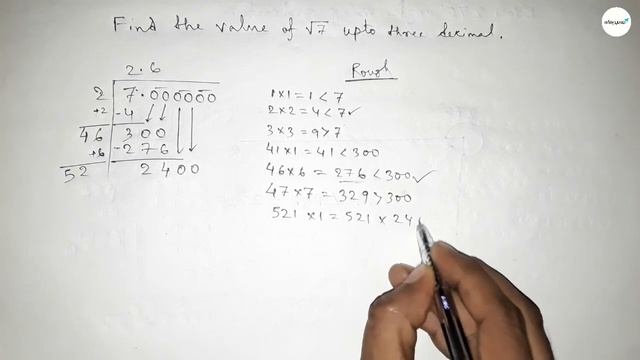 Find the value of √7 upto three decimal.
2.6
2 7.000000
+2 -4
46 300
+6 -276
52 2400
Rough
1×1=1<7
2×2=4<7✓
3×3=9>7
41×1=41<300
46×6=276<300✓
47×7=329>300
521×1=521×24